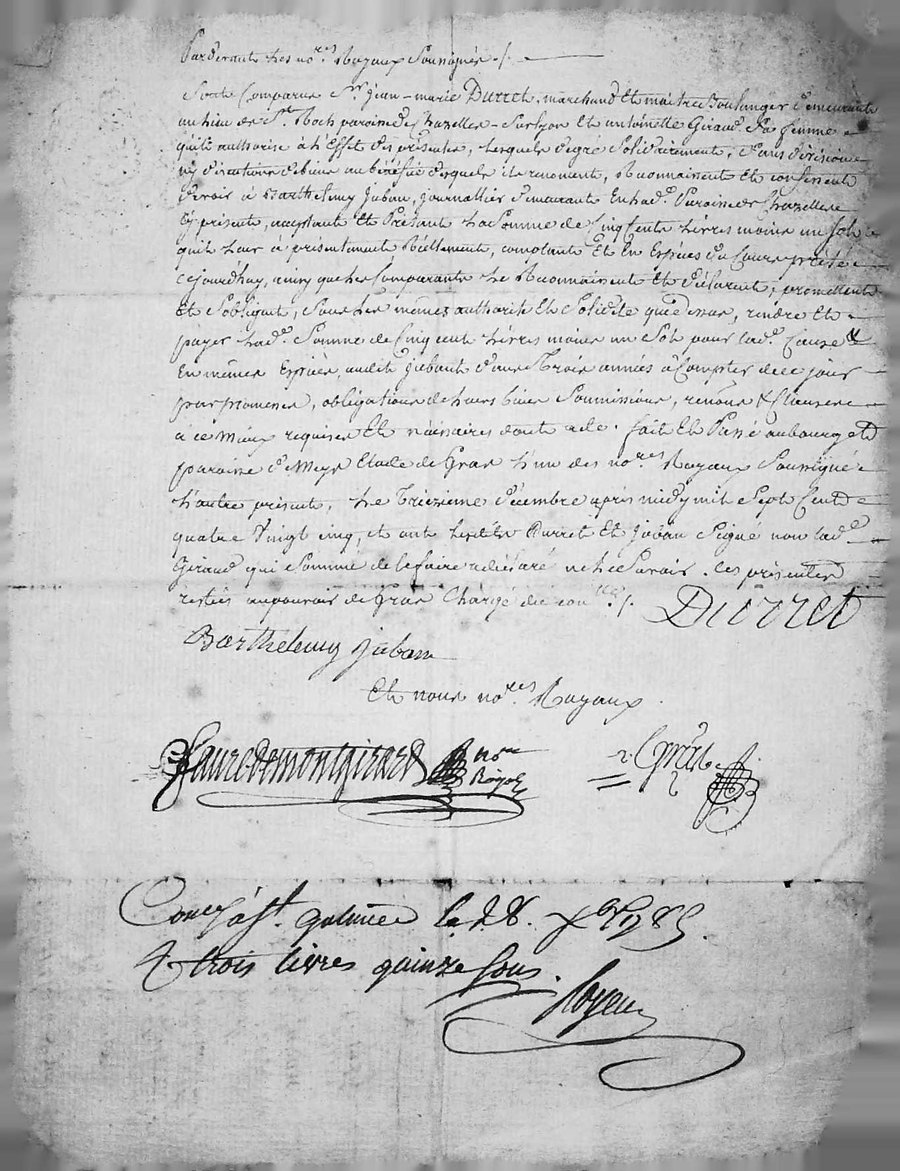 Pardevant Les no.res Royaux Soussignés /.
Sont Comparus Sr. jean-marie Durret, marchand Et maitre Boulanger demeurant
au Lieu de St. Roch paroisse de Chazelles-Sur Lyon Et antoinette Giraud Sa femme
quil authorise à L'Effet des présentes, Lesquels de gré Solidairement, Sans division
ny discution de biens au bénéfice desquels ils renoncent, Reconnaissent Et confessent
devoir à Barthelemy Juban, journallier demeurant En Lad.e Paroisse de Chazelles
Cy présent, acceptant Et La Somme de Cinq Cents Livres moins un Sol
quil Leur a présentement Réellement, comptant Et En Espèces du Cours prété
cejourdhuy, ainsy que Les Comparants Le Reconnaissent Et déclarent, promettent
Et Sobligent, Sous Les mêmes authorité Et Solidité que dessus, rendre Et
payer Lad.e Somme de Cinq cent Livres moins un Sol pour lad.e Cause &
En mêmes Espèces, audit Juban dans Trois années à Compter de ce jour
par promesse, obligations de Leurs biens Soumissions, renons & Clauses
à ce mieux requises Et nécéssaires dont acte. fait Et Passé au bourg et
paroisse de Meys Etude de Gras L'un des no.res Royaux Soussigné
L'autre présent, Le Treizieme décembre après midy mil Sept Cent
quatre Vingt cinq, et ont Lesd. Durret Et Juban Signé non lad.e
Giraud qui Sommé de le faire a déclaré ne Le Savoir. les présentes
restées au pouvoir de Gras Chargé du con.lle /. Durret
Barthelemy Juban
Et nous no.res Royaux
Faure de montgirard no.re
Royal Gras
Conlé à St. galmier le 18. Xbre 1785.
R trois livres quinze sous.